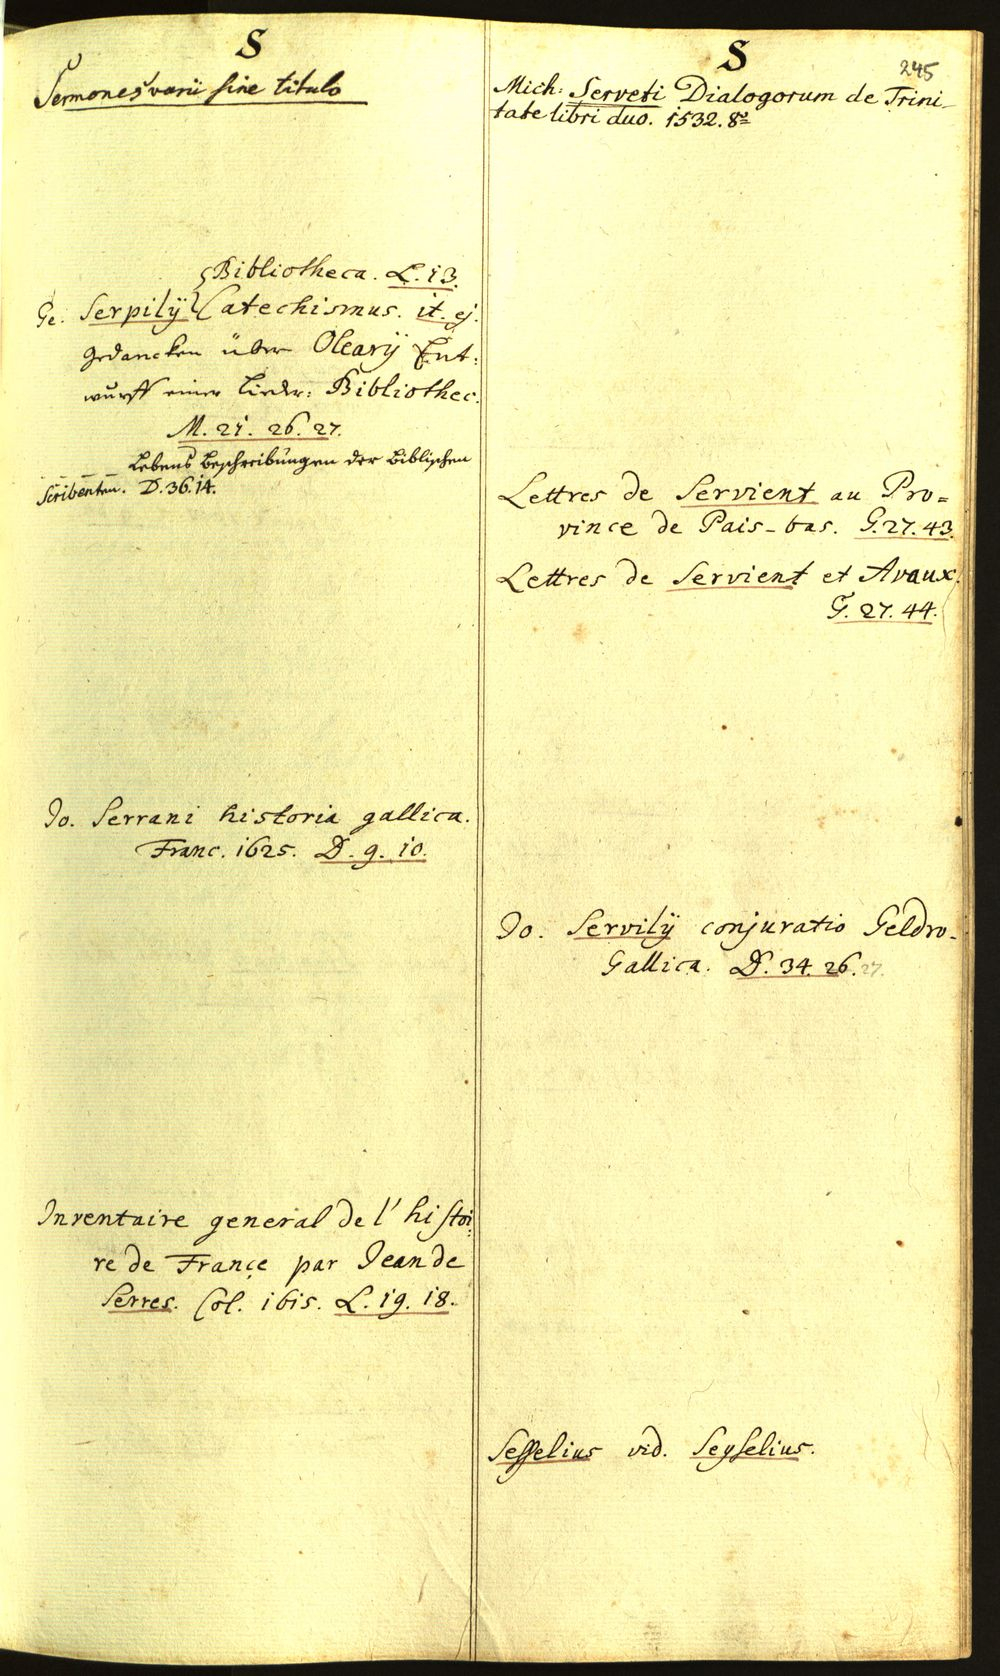 S
Sermones varii sine titulo
Bibliotheca. L. 13.
Ge. Serpilÿ Catechismus. it. ej.
Gedancken über Olearÿ Ent-
wurff einer Lieder: Bibliothec.
M. 21. 26. 27.
_ _ Lebens Beschreibungen der Biblischen
Scribenten. D. 36. 14.
Jo. Serrani historia gallica.
Franc. 1625. D. 9. 10.
Inventaire general de l' histoi
re de France par Jean de
Serres. Col. 1615. L. 19. 18.
S
245
Mich: Serveti Dialogorum de Trini-
tate libri duo. 1532. 8º
Lettres de Servient au Pro=
vince de Pais-bas. G. 27. 43.
Lettres de Servient et Avaux.
G. 27. 44.
Jo. Servilÿ conjuratio Geldro-
Gallica. D. 34. 26. 27.
Sesselius vid. Seyselius.